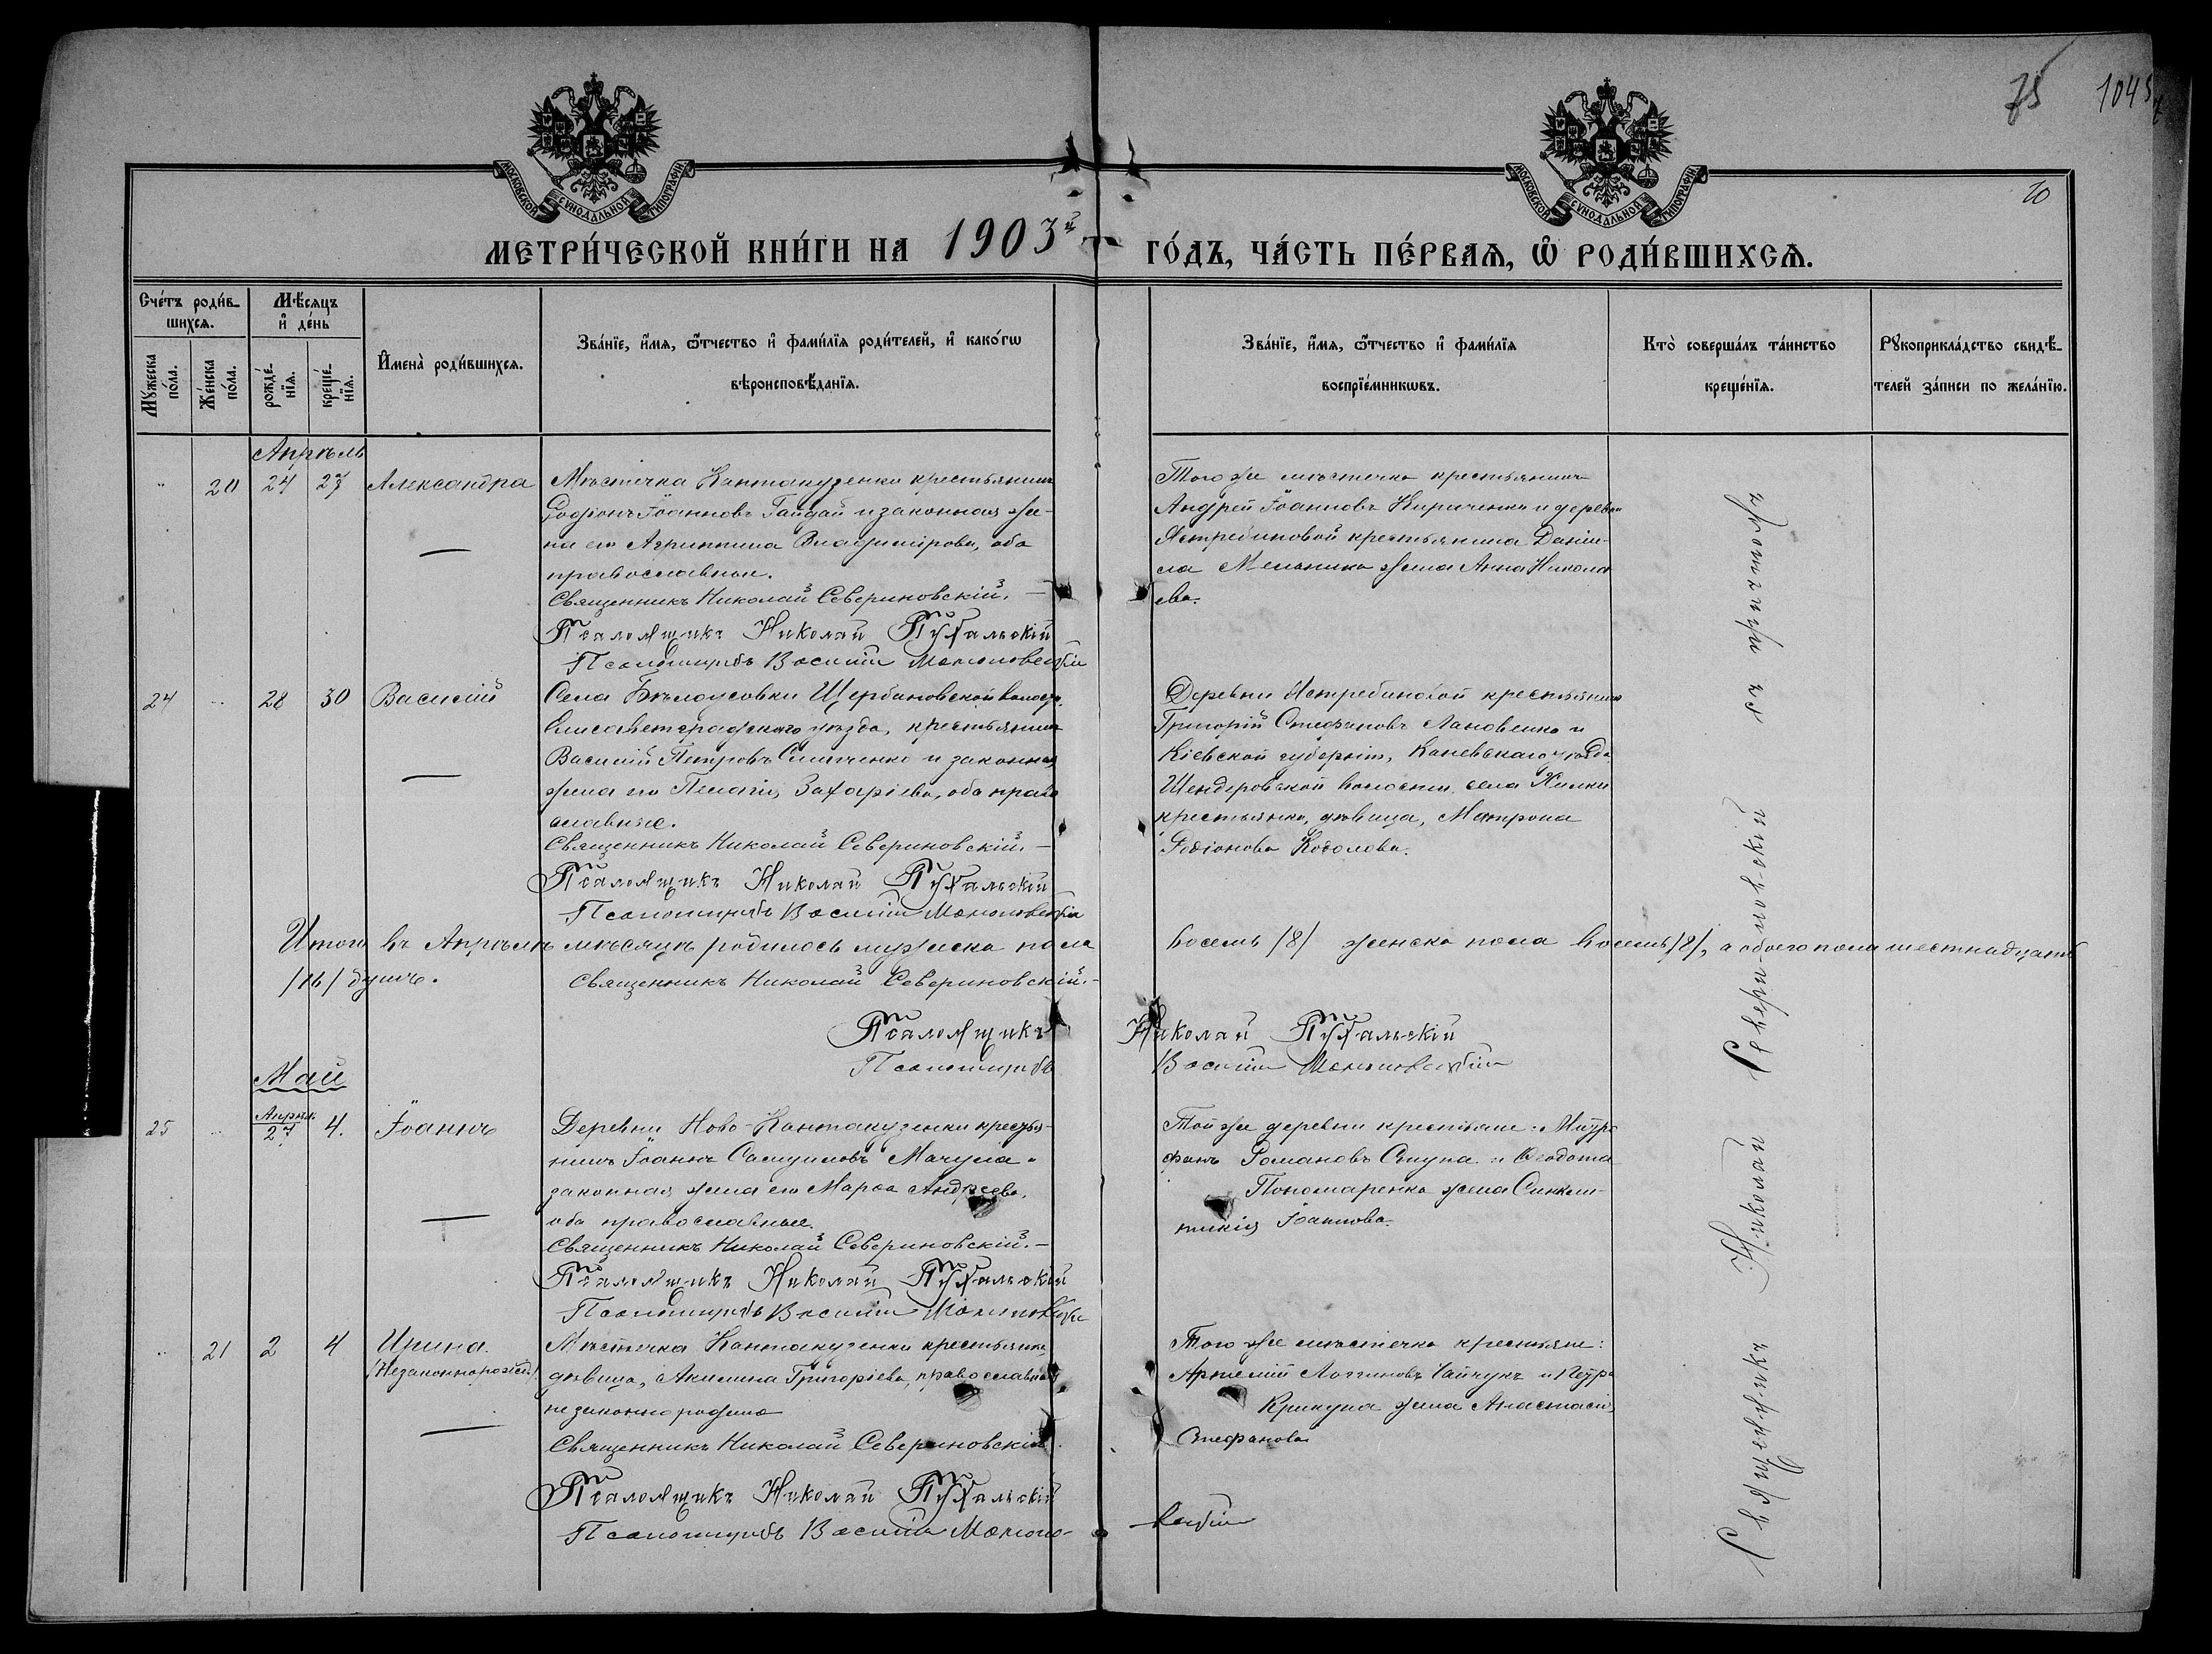 75 1045
10
МОСКОВСКОЙ СѴНОДАЛЬНОЙ ТИПОГРАФІИ
МОСКОВСКОЙ СѴНОДАЛЬНОЙ ТИПОГРАФІИ
МЕТРИ́ЧЕСКОЙ КНИ́ГИ НА 1903й ГО́ДЪ, ЧА́СТЬ ПЕ́РВАѦ, Ѡ҆ РОДИ́ВШИХСѦ.
Сче́тъ роди́в-
шихсѧ.
Мꙋ́жеска по́ла.
Же́нска по́ла.
Мѣ́сяцъ
и҆ де́нь
рожде́-
нїѧ.
креще́-
нїѧ.
И҆мена̀ роди́вшихсѧ.
Зва́нїе, и҆́мѧ, ѻ҆́тчество и҆ фами́лїѧ роди́телей, и҆ како́гѡ
вѣроисповѣ́данїѧ.
Зва́нїе, и҆́мѧ, ѻ҆́тчество и҆ фами́лїѧ
воспрїе́мникѡвъ.
Кто̀ соверша́лъ та́инство
креще́нїѧ.
Рꙋкоприкла́дство свидѣ́-
телей за́писи по жела́нїю.
Апрѣль
20 24 27 Александра
Мѣстечка Кантакузенки крестьянинъ
Родіонъ Іоанновъ Гайдай и законная же-
на его Агриппина Владимірова, оба
православные.
Священникъ Николай Севериновскій.
Псаломщикъ Николай Пухальскій
Псаломщикъ Василій
Того же мѣстечка крестьянинъ
Андрей Іоанновъ Кириченко и деревни
Ястребиновой крестьянина Дании-
ла Мельника жена Анна Никола-
ева.
24 28 30 Василій
Села Бѣлоусовки Щербановской волости,
Елисаветградскаго уѣзда, крестьянинъ
Василій Петровъ и законная
жена его Пелагія Захаріева, оба право
славные.
Священникъ Николай Севериновскій.
Псаломщикъ Николай Пухальскій
Псаломщикъ Василій
Деревни Ястребиновой крестьянинъ
Григорій Стефановъ Лановенко и
Кіевской губерніи, Каневскаго уѣзда
Шендеровской волости, села Хилки
крестьянка, дѣвица, Матрона
Родіонова
Итого въ Апрѣлѣ мѣсяцѣ родилось мужеска пола восемь /8/ женска пола восемь /8/, а обоего пола шестнадцать
/16/ душъ.
Священникъ Николай Севериновскій.
Псаломщикъ Николай Пухальскій
Псаломщикъ Василій
Май
25 Апрѣля 27 4. Іоаннъ
Деревни Ново-Кантакузенки крестья-
нинъ Іоаннъ Самуиловъ Мачула и
законная жена его Марѳа Андреева,
оба православные.
Священникъ Николай Севериновскій.
Псаломщикъ Николай Пухальскій
Псаломщикъ Василій
Той же деревни крестьяне: Митро
фанъ Романовъ Ступа и Ѳеодота
Пономаренка жена Синкли-
тикія Іоаннова.
21 2 4 Ирина
(Незаконнорожд.)
Мѣстечка Кантакузенки крестьянка,
дѣвица, Акилина Григоріева, православная
незаконно родила
Священникъ Николай Севериновскій.
Псаломщикъ Николай Пухальскій
Псаломщикъ Василій
Того же мѣстечка крестьяне:
Артемій Логгиновъ и Петра
Крикуна жена Анастасія
Стефанова
Священникъ Николай Севериновскій съ причтомъ